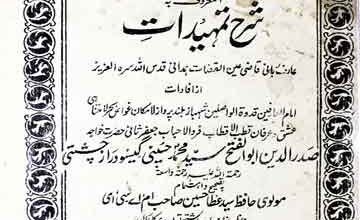 المعروف بہ
شرح تمہیدات
عارف ربانی قاضی عین القضات ہمدانی قدس اللہ سرہ العزیز
از افادات
امام العارفین قدوۃ الواصلین شہباز بلند پرواز لامکان غواص بحر لامتناہی
عشق و عرفان قطب الاقطاب فرد الاحباب جعفر ثانی حضرت خواجہ
صدر الدین ابو الفتح سید محمد حسینی گیسو دراز چشتی
رحمۃ اللہ علیہ رحمۃ واسعۃ
بتصحیح و اہتمام
مولوی حافظ سید عطا حسین صاحب ام اے سی ای